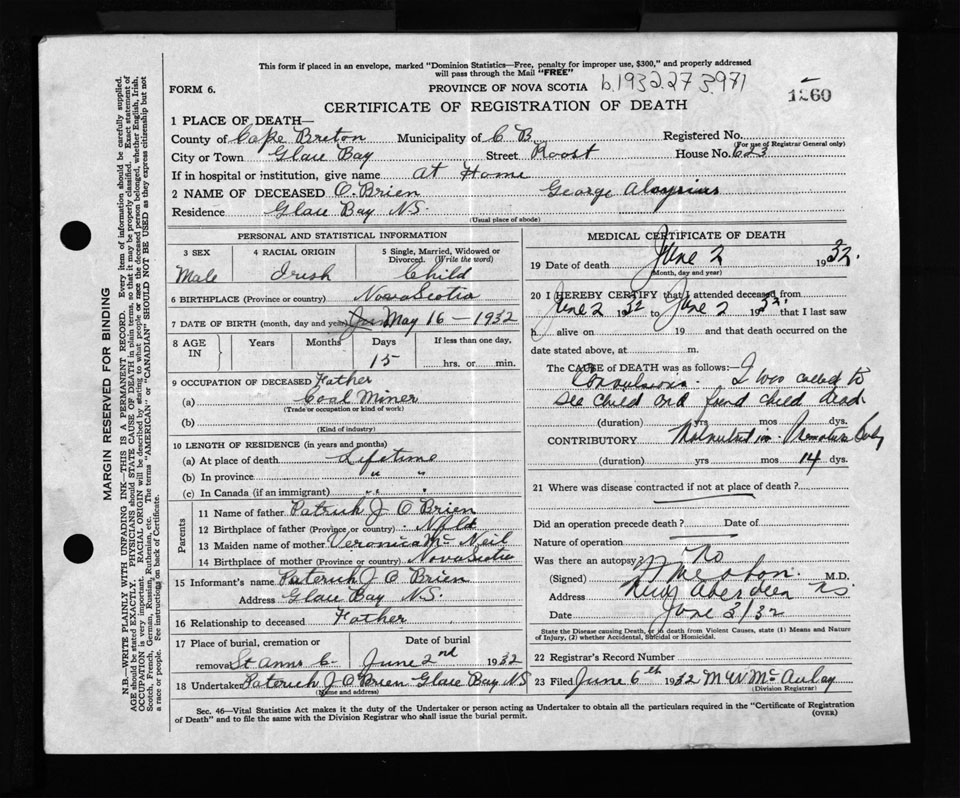 This form if placed in an envelope, marked "Dominion Statistics—Free, penalty for improper use, $300," and properly addressed
will pass through the Mail "FREE"
FORM 6.
PROVINCE OF NOVA SCOTIA
b.1932.273971
1260
CERTIFICATE OF REGISTRATION OF DEATH
1 PLACE OF DEATH—
County of Cape Breton Municipality of C B Registered No.
(For use of Registrar General only)
City or Town Glace Bay Street Roost House No. 623
If in hospital or institution, give name at Home
2 NAME OF DECEASED O.Brien George Aloysius
Residence Glace Bay NS.
(Usual place of abode)
PERSONAL AND STATISTICAL INFORMATION
3 SEX 4 RACIAL ORIGIN 5 Single, Married, Widowed or Divorced. (Write the word)
Male Irish Child
6 BIRTHPLACE (Province or country) Nova Scotia
7 DATE OF BIRTH (month, day and year) May 16 - 1932
8 AGE IN Years Months Days If less than one day,
15 hrs. or min.
9 OCCUPATION OF DECEASED Father
(a) Coal Miner
(Trade or occupation or kind of work)
(b)
(Kind of industry)
10 LENGTH OF RESIDENCE (in years and months)
(a) At place of death Lifetime
(b) In province " "
(c) In Canada (if an immigrant) " "
Parents
11 Name of father Patrick J O Brien
12 Birthplace of father (Province or country) Nfld
13 Maiden name of mother Veronica Mc Neil
14 Birthplace of mother (Province or country) Nova Scotia
15 Informant's name Paterick J. O Brien
Address Glace Bay N.S.
16 Relationship to deceased Father
17 Place of burial, cremation or removal St Anns C- Date of burial June 2nd 1932
18 Undertaker Paterick J. O Brien Glace Bay N.S
(Name and address)
MEDICAL CERTIFICATE OF DEATH
19 Date of death June 2 1932.
(Month, day and year)
20 I HEREBY CERTIFY that I attended deceased from
June 2 1932 to June 2 1932. that I last saw
h alive on 19 and that death occurred on the
date stated above, at m.
The CAUSE of DEATH was as follows:—
Convulsions. I was called to
see child and found child dead.
(duration) yrs mos dys.
CONTRIBUTORY Malnutrition - Premature Baby
(duration) yrs mos 14 dys.
21 Where was disease contracted if not at place of death?
Did an operation precede death? Date of
Nature of operation
Was there an autopsy? No
(Signed) M.D.
Address New Aberdeen NS
Date June 3/32
State the Disease causing Death, or in death from Violent Causes, state (1) Means and Nature
of Injury, (2) whether Accidental, Suicidal or Homicidal.
22 Registrar's Record Number
23 Filed June 6th 1932 M W McAulay
(Division Registrar)
Sec. 46—Vital Statistics Act makes it the duty of the Undertaker or person acting as Undertaker to obtain all the particulars required in the "Certificate of Registration
of Death" and to file the same with the Division Registrar who shall issue the burial permit.
(OVER)
MARGIN RESERVED FOR BINDING
N.B.—WRITE PLAINLY WITH UNFADING INK—THIS IS A PERMANENT RECORD. Every item of information should be carefully supplied.
AGE should be stated EXACTLY. PHYSICIANS should STATE CAUSE OF DEATH in plain terms, so that it may be properly classified. Exact statement of
OCCUPATION is very important. RACIAL ORIGIN will be described by stating to what people or race the deceased person belonged, whether English, Irish,
Scotch, French, German, Russian, Ruthenian, etc. The terms "AMERICAN" or "CANADIAN" SHOULD NOT BE USED as they express citizenship but not
a race or people. See instructions on back of Certificate.